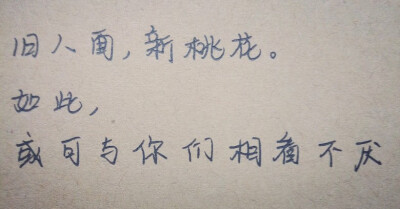 旧人面，新桃花。
如此，
或可与你们相看不厌